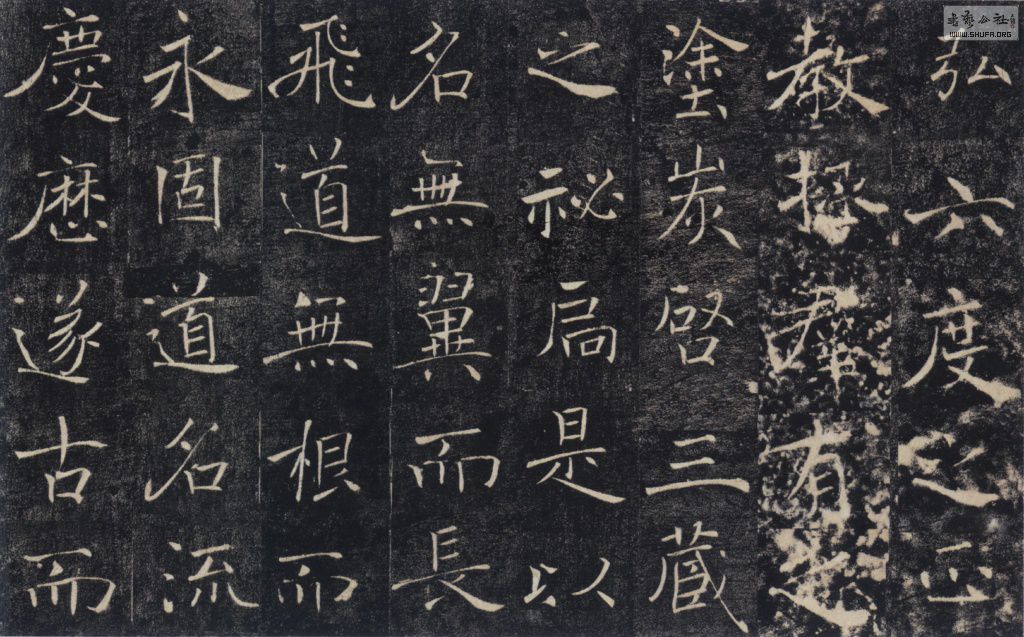 弘六度之正
教拯羣有之
塗炭啓三藏
之祕扃是以
名無翼而長
飛道無根而
永固道名流
慶歷遂古而
WWW.SHUFA.ORG